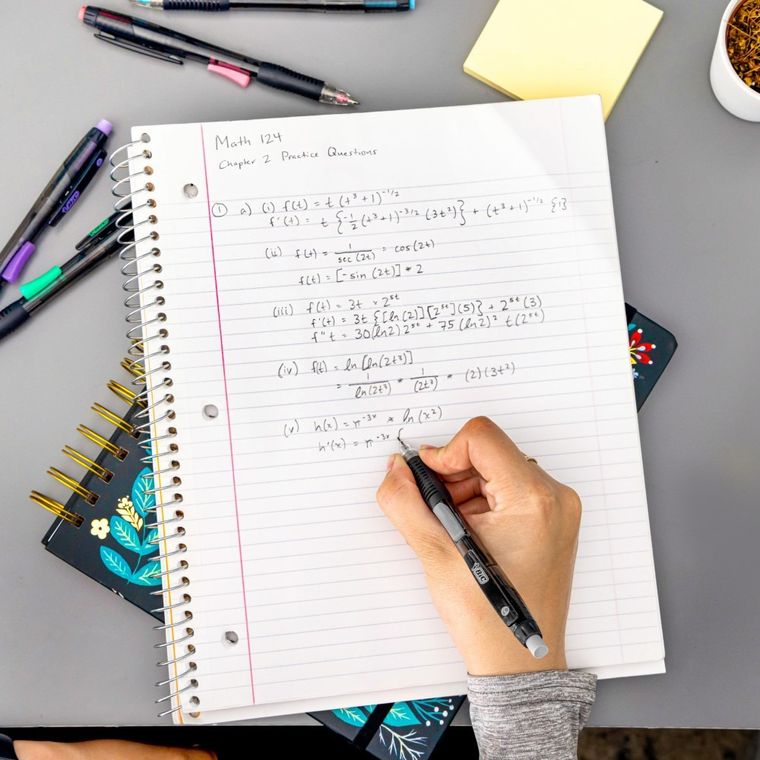 Math 124
Chapter 2 Practice Questions
① a) (i) f(t) = t (t³ + 1)^-1/2
f'(t) = t {-1/2 (t³ + 1)^-3/2 (3t²)} + (t³ + 1)^-1/2 {1}
(ii) f(t) = 1/sec(2t) = cos(2t)
f(t) = [-sin (2t)] * 2
(iii) f(t) = 3t * 2^5t
f'(t) = 3t {[ln(2)] [2^5t] (5)} + 2^5t (3)
f'' t = 30(ln2) 2^5t + 75 (ln2)² t (2^5t)
(iv) f(t) = ln [ln(2t³)]
= 1/ln(2t³) * 1/(2t³) * (2)(3t²)
(v) h(x) = π^-3x * ln(x²)
h'(x) = π^-3x {
BIC